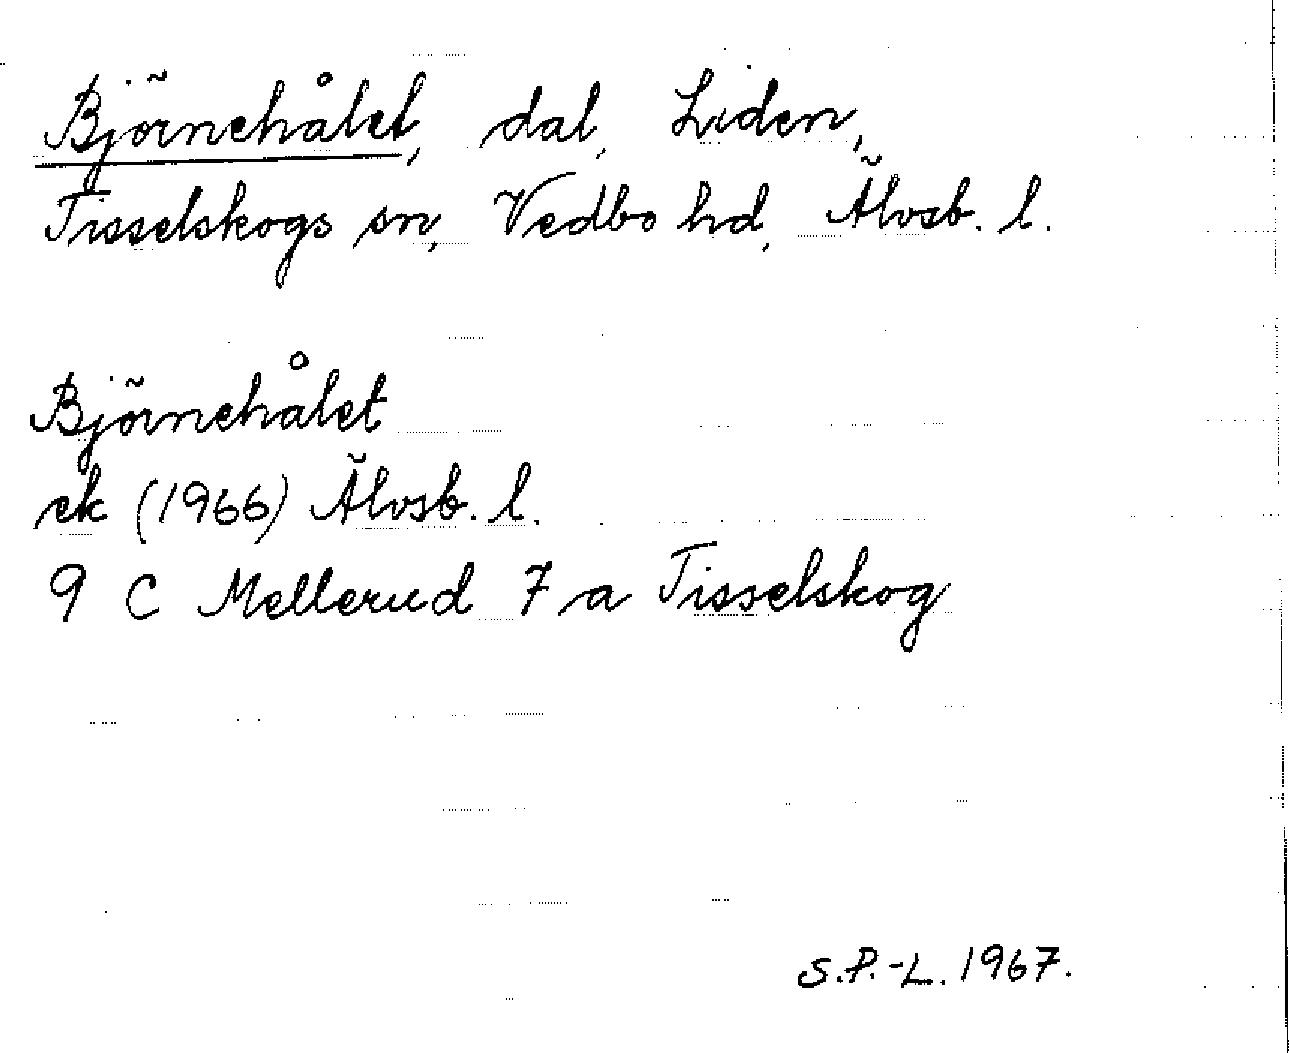 Björnehålet, dal, Liden,
Tisselskogs sn, Vedbo hd, Älvsb. l.
Björnehålet
ek (1966) Älvsb. l.
9 C Mellerud 7 a Tisselskog
S.P.-L. 1967.